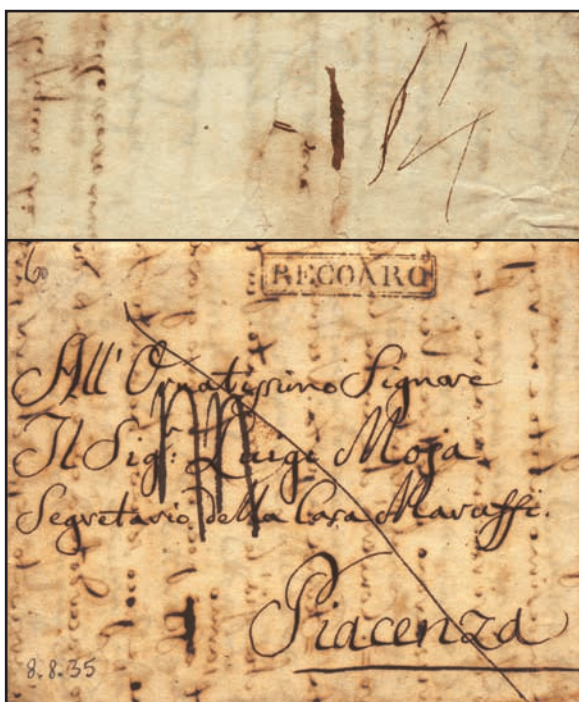 RECOARO
All' Ornatissimo Signore
Il Sig.r Luigi Moja
Segretario della Casa Maruffi.
Piacenza
8.8.35